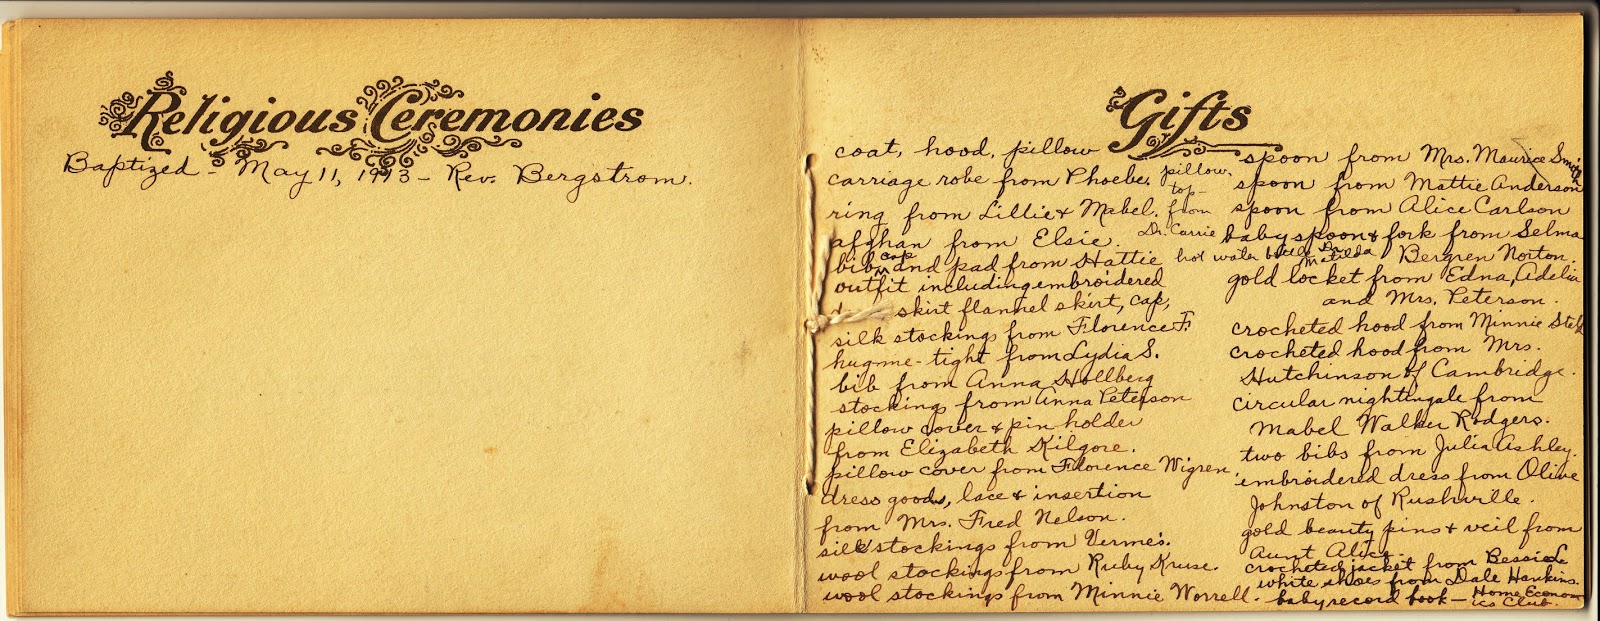 Religious Ceremonies
Baptized - May 11, 1913 - Rev. Bergstrom.
Gifts
coat, hood, pillow
carriage robe from Phoebe.
ring from Lillie & Mabel.
afghan from Elsie.
bib cap and pad from Hattie
outfit including embroidered
skirt flannel skirt, cap,
silk stockings from Florence F
hug-me-tight from Lydia S.
bib from Anna Hollberg
stockings from Anna Peterson
pillow cover & pin holder
from Elizabeth Kilgore.
pillow cover from Florence Wigren.
dress goods, lace & insertion
from Mrs. Fred Nelson.
silk stockings from Verme's.
wool stockings from Ruby Kruse.
wool stockings from Minnie Worrell.
pillow
top -
from
Dr. Carrie
hot water bottle Dr.
Matilda
spoon from Mrs. Maurice Smith
spoon from Mattie Anderson
spoon from Alice Carlson
baby spoon & fork from Selma
Bergren Norton.
gold locket from Edna, Adelia
and Mrs. Peterson.
crocheted hood from Minnie
crocheted hood from Mrs.
Hutchinson of Cambridge.
circular nightingale from
Mabel Walker Rodgers.
two bibs from Julia Ashley.
embroidered dress from Olive
Johnston of Rushville.
gold beauty pins & veil from
Aunt Alice.
crocheted jacket from Bessie L
white shoes from Dale Hankins.
baby record book - Home Econom-
ics Club.